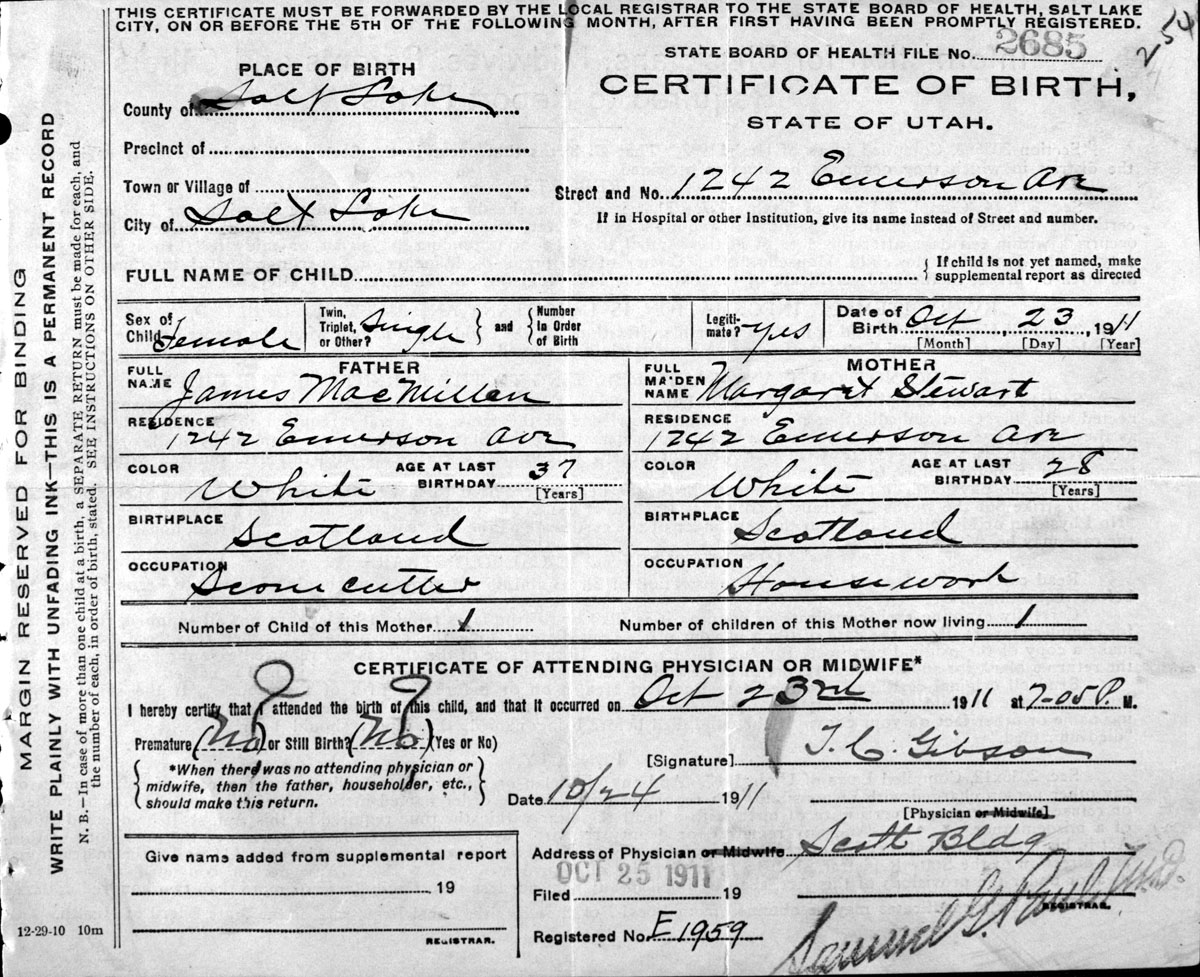 THIS CERTIFICATE MUST BE FORWARDED BY THE LOCAL REGISTRAR TO THE STATE BOARD OF HEALTH, SALT LAKE
CITY, ON OR BEFORE THE 5TH OF THE FOLLOWING MONTH, AFTER FIRST HAVING BEEN PROMPTLY REGISTERED.
254
STATE BOARD OF HEALTH FILE No. 2685
PLACE OF BIRTH
CERTIFICATE OF BIRTH,
STATE OF UTAH.
County of Salt Lake
Precinct of
Town or Village of
Street and No. 1242 Emerson Ave
City of Salt Lake
If in Hospital or other Institution, give its name instead of Street and number.
FULL NAME OF CHILD
If child is not yet named, make
supplemental report as directed
Sex of
Child Female
Twin,
Triplet,
or Other? Single
and
Number
In Order
of Birth
Legiti-
mate? yes
Date of
Birth Oct, 23, 1911
[Month] [Day] [Year]
FATHER
FULL
NAME James MacMillan
MOTHER
FULL
MAIDEN
NAME Margaret Stewart
RESIDENCE
1242 Emerson Ave
RESIDENCE
1242 Emerson Ave
COLOR
White
AGE AT LAST
BIRTHDAY 37
[Years]
COLOR
White
AGE AT LAST
BIRTHDAY 28
[Years]
BIRTHPLACE
Scotland
BIRTHPLACE
Scotland
OCCUPATION
Stonecutter
OCCUPATION
Housework
Number of Child of this Mother 1
Number of children of this Mother now living 1
CERTIFICATE OF ATTENDING PHYSICIAN OR MIDWIFE*
I hereby certify that I attended the birth of this child, and that it occurred on Oct 23rd 1911 at 7-05 P. M.
Premature (No) or Still Birth? (No) (Yes or No)
*When there was no attending physician or
midwife, then the father, householder, etc.,
should make this return.
[Signature] T. C. Gibson
Date 10/24 1911
[Physician or Midwife]
Address of Physician or Midwife Scott Bldg
Give name added from supplemental report
19
REGISTRAR.
OCT 25 1911
Filed 19
Samuel G. Paul M.D.
REGISTRAR.
Registered No. E1959
12-29-10 10m
MARGIN RESERVED FOR BINDING
WRITE PLAINLY WITH UNFADING INK—THIS IS A PERMANENT RECORD
N. B.—In case of more than one child at a birth, a SEPARATE RETURN must be made for each, and
the number of each, in order of birth, stated. SEE INSTRUCTIONS ON OTHER SIDE.